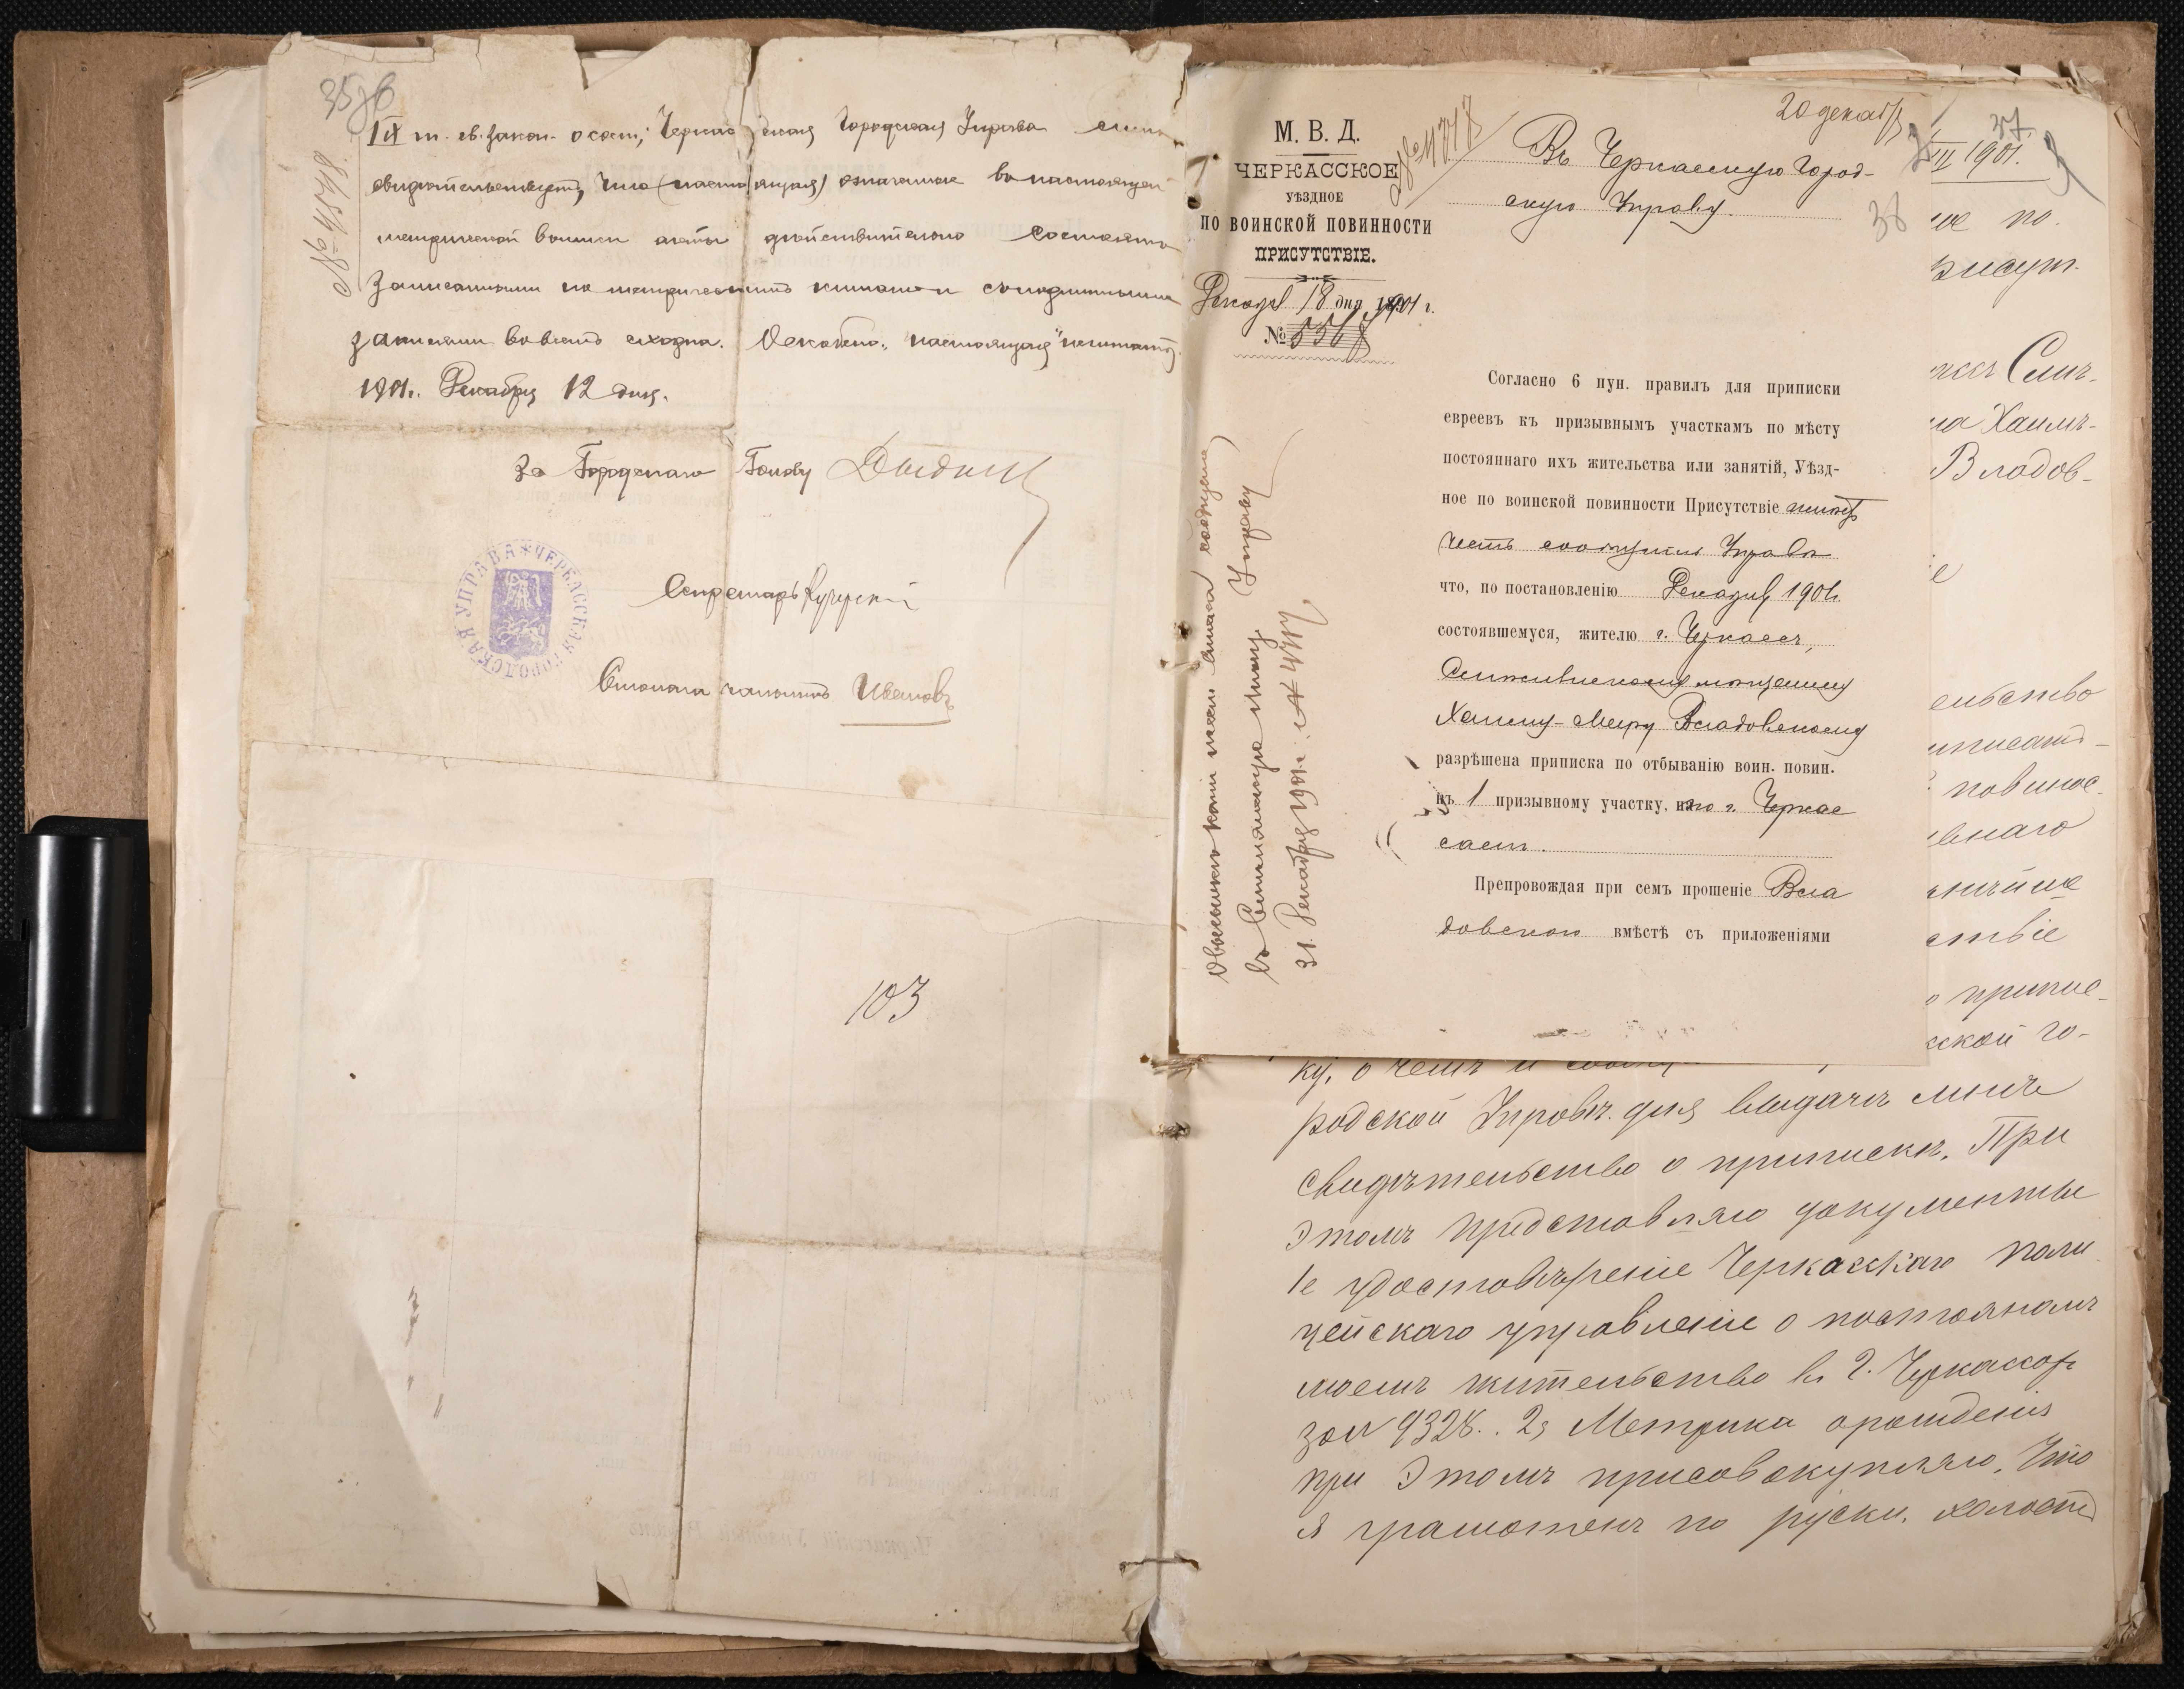 35 об
IX т. св. закон. о сост., Черкасская Городская Управа симъ
свидѣтельствуетъ, что (настоящая) означенные въ настоящей
метрической выписи акты дѣйствительно состоятъ
записанными по метрическимъ книгамъ и съ подлинными
записями во всемъ сходна. Оскоблено: "настоящая" не читать.
1901 г. Декабря 12 дня.
За Городского Голову
Секретарь Кучерскій
Столоначальникъ Ивановъ
ЧЕРКАССКАЯ ГОРОДСКАЯ УПРАВА
103
М. В. Д.
ЧЕРКАССКОЕ
УѢЗДНОЕ
ПО ВОИНСКОЙ ПОВИННОСТИ
ПРИСУТСТВІЕ.
Декабря 18 дня 1901 г.
№ 5568
20 декабр
Въ Черкасскую Город-
скую Управу.
Согласно 6 пун. правилъ для приписки
евреевъ къ призывнымъ участкамъ по мѣсту
постояннаго ихъ жительства или занятій, Уѣзд-
ное по воинской повинности Присутствіе имѣетъ
честь сообщить Управѣ
что, по постановленію Декабря 1901 г.
состоявшемуся, жителю г. Черкассъ,
мѣщанину
Хаиму-Мееру Владовскому
разрѣшена приписка по отбыванію воин. повин.
къ 1 призывному участку, по г. Черкас
самъ.
Препровождая при семъ прошеніе Вла
довского вмѣстѣ съ приложеніями
въ Управу
31 Декабря 1901 г. №
37.
III 1901.
38
ие по.
Хаимъ-
Владов-
ельство
повинос-
ывнаго
ствіе
о припис-
сской го-
ку, о чемъ и
родской Управѣ для выдачи мнѣ
свидѣтельство о припискѣ. При
этомъ представляю документы
1е удостовѣреніе Черкасскаго поли
цейскаго управленіе о постояномъ
моемъ жительство въ г. Черкассоѣ
за № 9328. 2, Метрика о рожденія
при этомъ присовокупляю, что
я грамотенъ по руски, холостъ